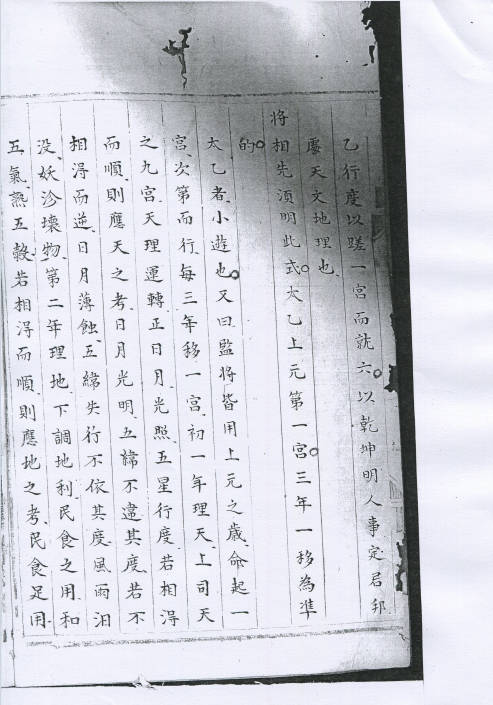 乙行度以蹉一宮而就六。以乾坤明人事定君邦
處天文地理也、
將相先須明此式。太乙上元第一宮。三年一移為準
的。
太乙者、小遊也。又曰監將皆用上元之歲、命起一
宮、次第而行、每三年移一宮、初一年理天、上司天
之九宮、天理運轉正日月光照、五星行度、若相得
而順、則應天之考、日月光明、五緯不違其度、若不
相得而逆、日月薄蝕、五緯失行不依其度、風雨汨
没、妖沴壞物、第二年理地、下調地利、民食之用、和
五氣、熟五穀、若相得而順、則應地之考、民食足用、